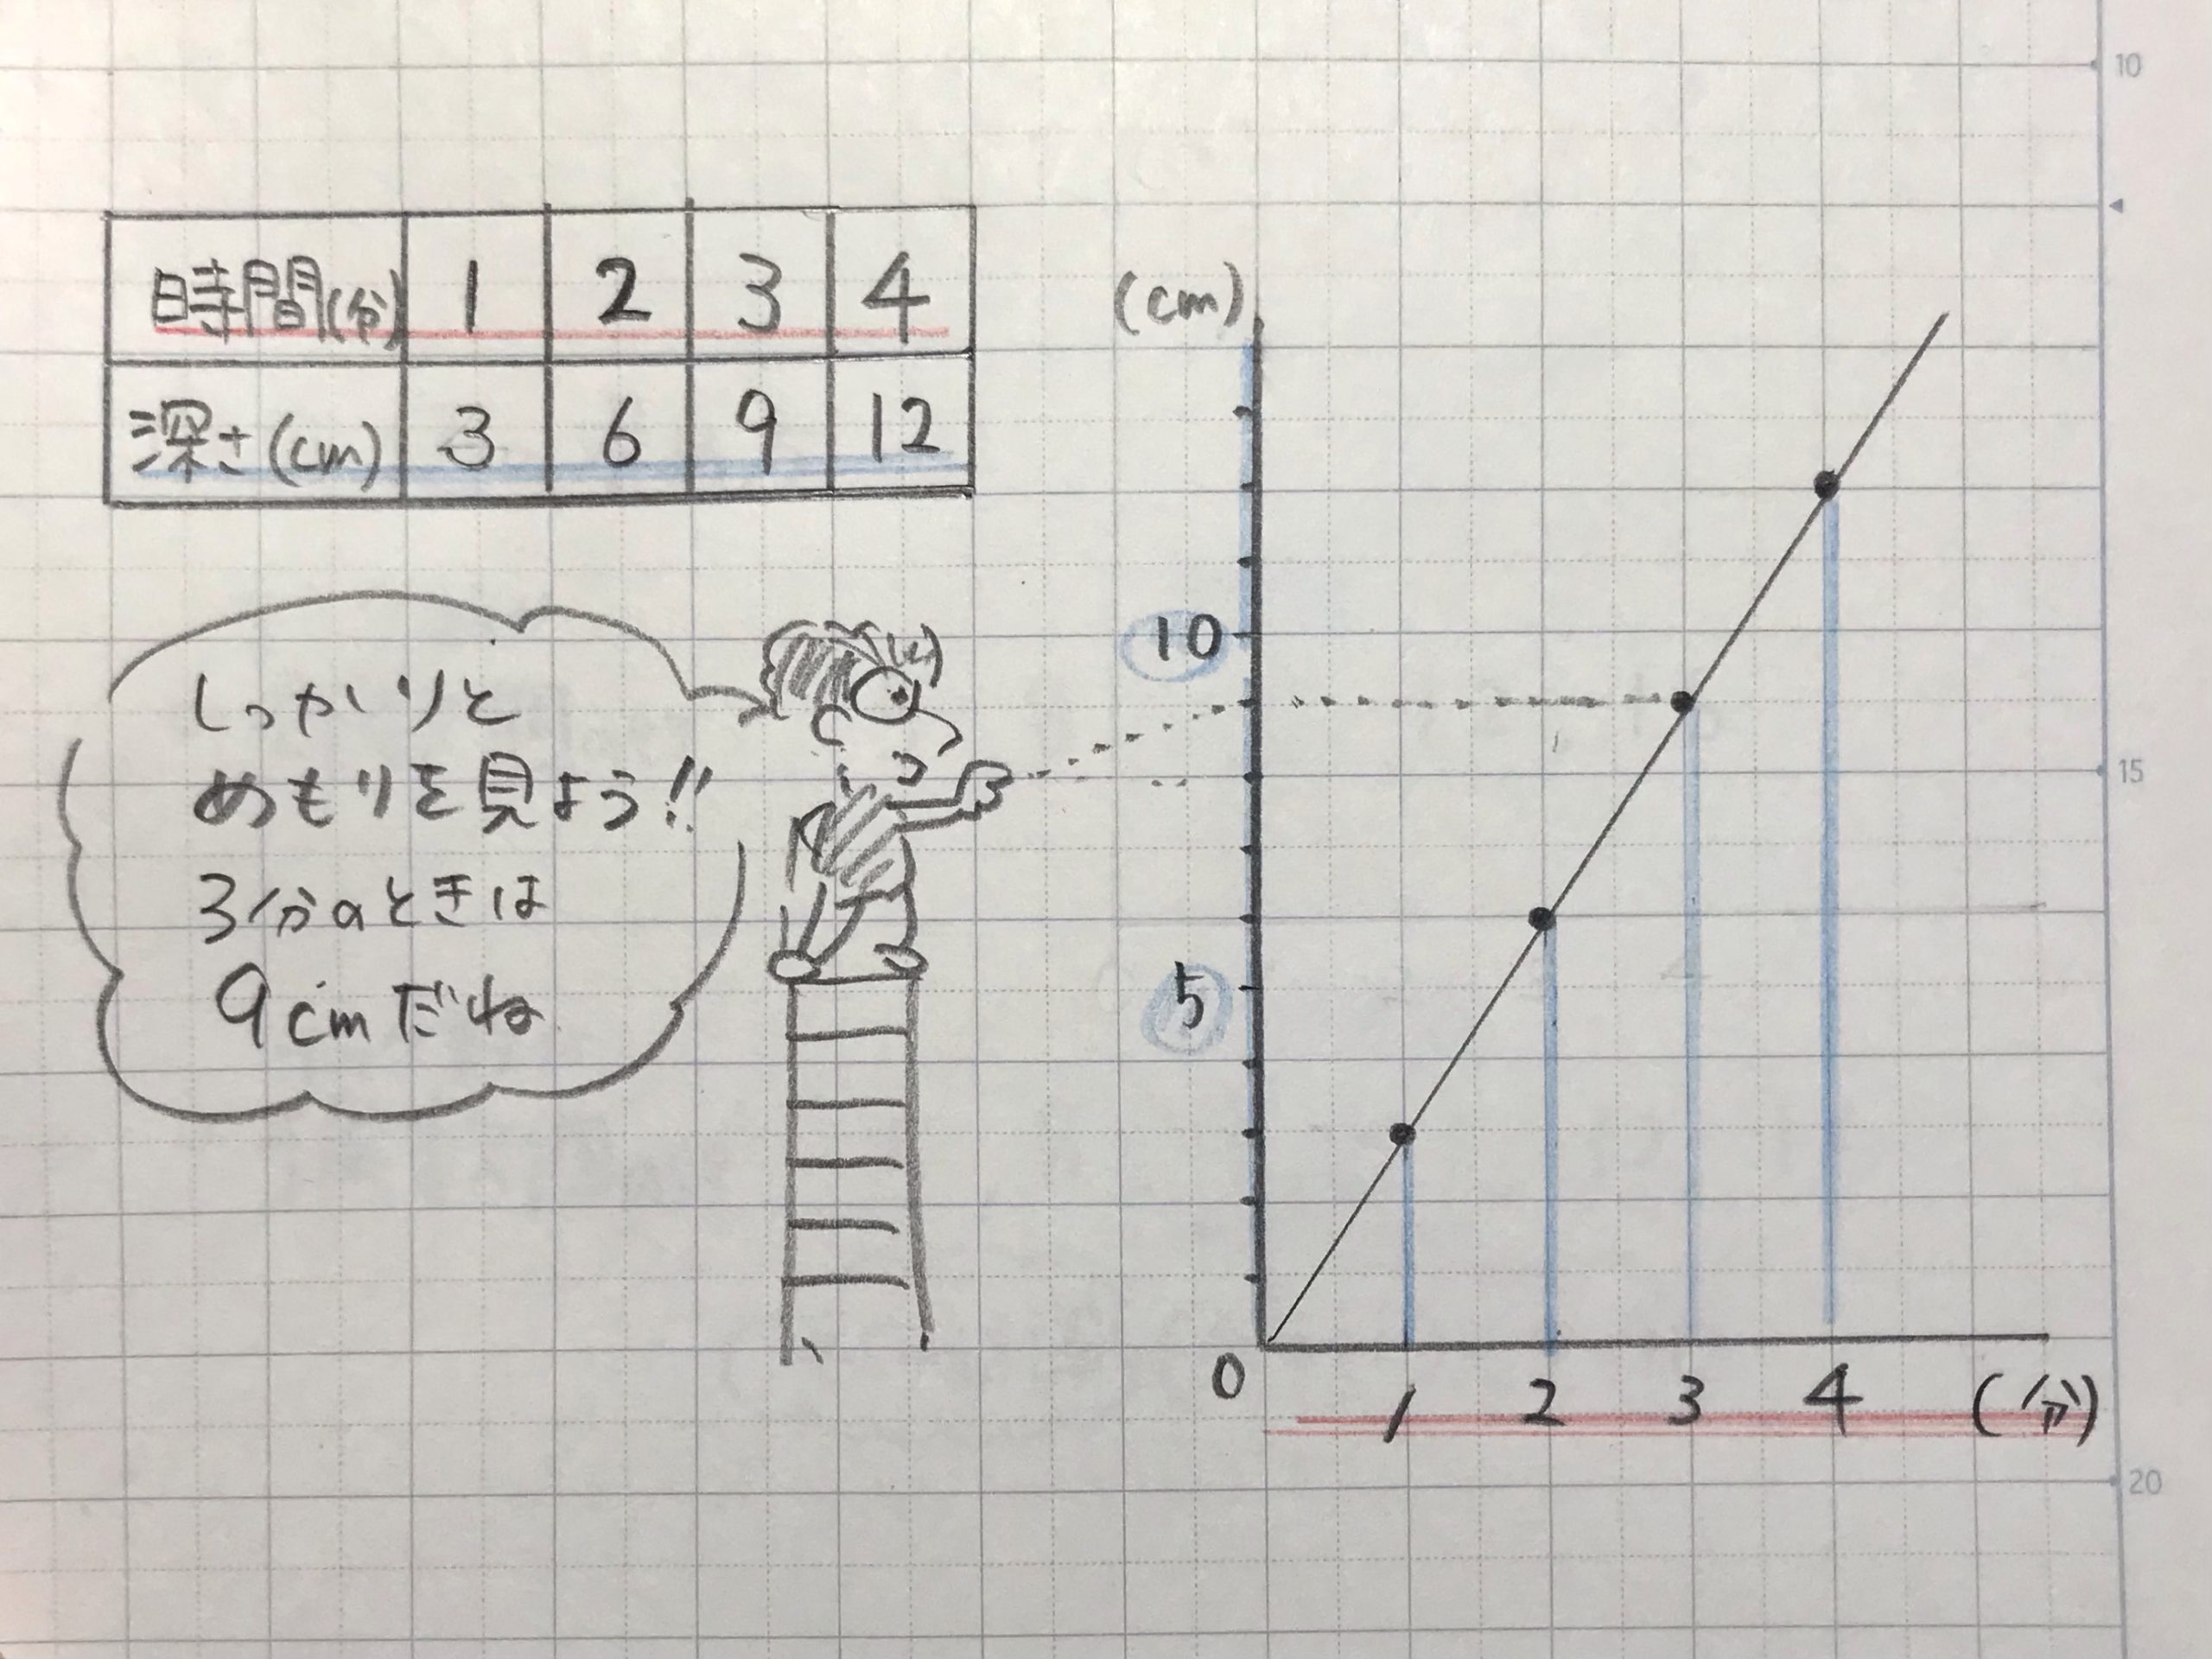 時間(分) 1 2 3 4
深さ(cm) 3 6 9 12
しっかりと
めもりを見よう!!
3分のときは
9cmだね
(cm)
10
5
0 1 2 3 4 (分)
10
15
20